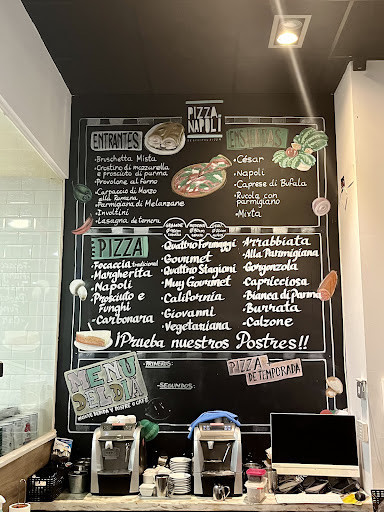 PIZZA
NAPOLI
ENTRANTES
·Bruschetta Mista
·Crostino di mozzarella
e prosciuto di parma
·Provolone al Forno
·Carpaccio di Manzo
alla Rumana
·Parmigiana di Melanzane
·Involtini
·Lasagna de Ternera
ENSALADAS
·César
·Napoli
·Caprese di Bufala
·Rucola con
parmigiano
·Mixta
PIZZA
·Focaccia tradicional
·Margherita
·Napoli
·Prosciuto e
Funghi
·Carbonara
·Quattro Formaggi
·Gourmet
·Quattro Stagioni
·Muy Gourmet
·California
·Giovanni
·Vegetariana
·Arrabbiata
·Alla Parmigiana
·Gorgonzola
·Capricciosa
·Bianca di Parma
·Burrata
·Calzone
¡Prueba nuestros Postres!!
MENU
DEL DIA
·PRIMEROS:
·SEGUNDOS:
PIZZA
DE TEMPORADA